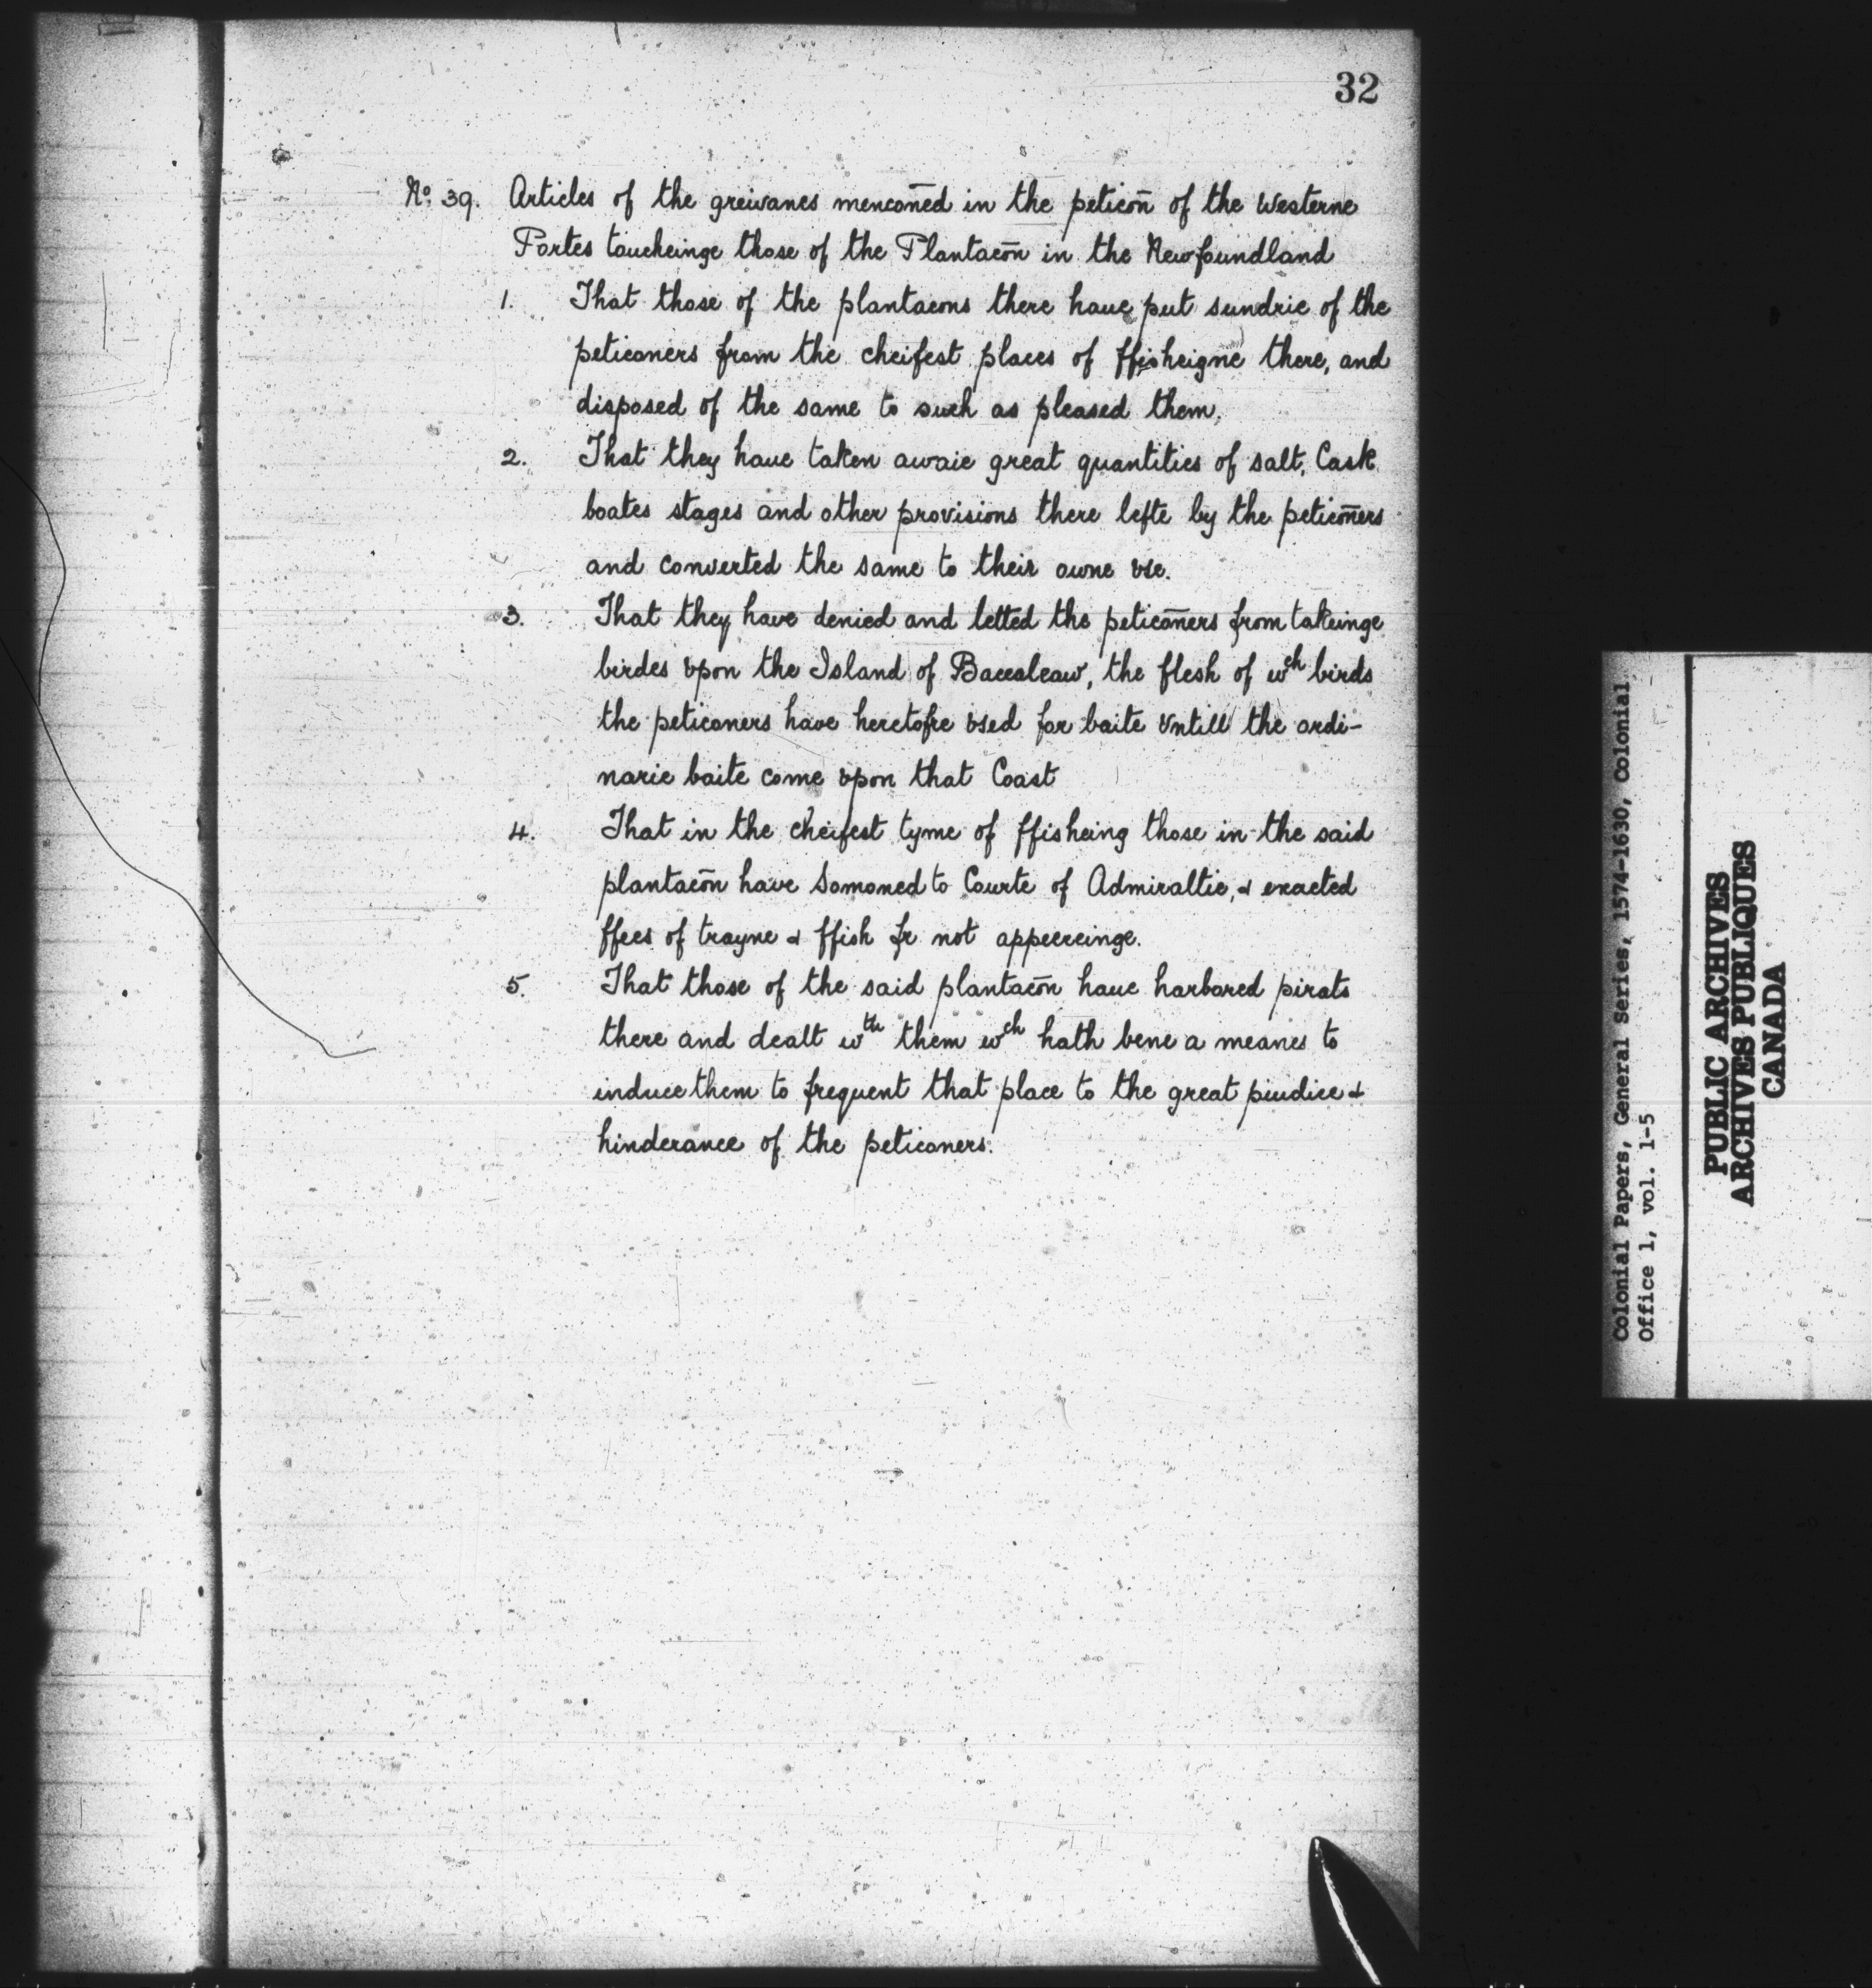 32
No. 39. Articles of the greivanes menconēd in the peticōn of the Westerne
Portes toucheinge those of the Plantacōn in the Newfoundland
1. That those of the plantacons there haue put sundrie of the
peticoners from the cheifest places of ffisheigne there, and
disposed of the same to such as pleased them.
2. That they haue taken awaie great quantities of salt, Cask
boates stages and other provisions there lefte by the peticōners
and converted the same to their owne vse.
3. That they have denied and letted the peticōners from takeinge
birdes vpon the Island of Baccaleaw, the flesh of wch birds
the peticoners have heretofre vsed for baite vntill the ordi-
narie baite come vpon that Coast
4. That in the cheifest tyme of ffisheing those in the said
plantacōn have Somoned to Courte of Admiraltie, & exacted
ffees of trayne & ffish fr not appeereinge.
5. That those of the said plantacōn haue harbored pirats
there and dealt wth them wch hath bene a meanes to
induce them to frequent that place to the great piudice &
hinderance of the peticoners.
Colonial Papers, General Series, 1574-1630, Colonial
Office 1, vol. 1-5
PUBLIC ARCHIVES
ARCHIVES PUBLIQUES
CANADA